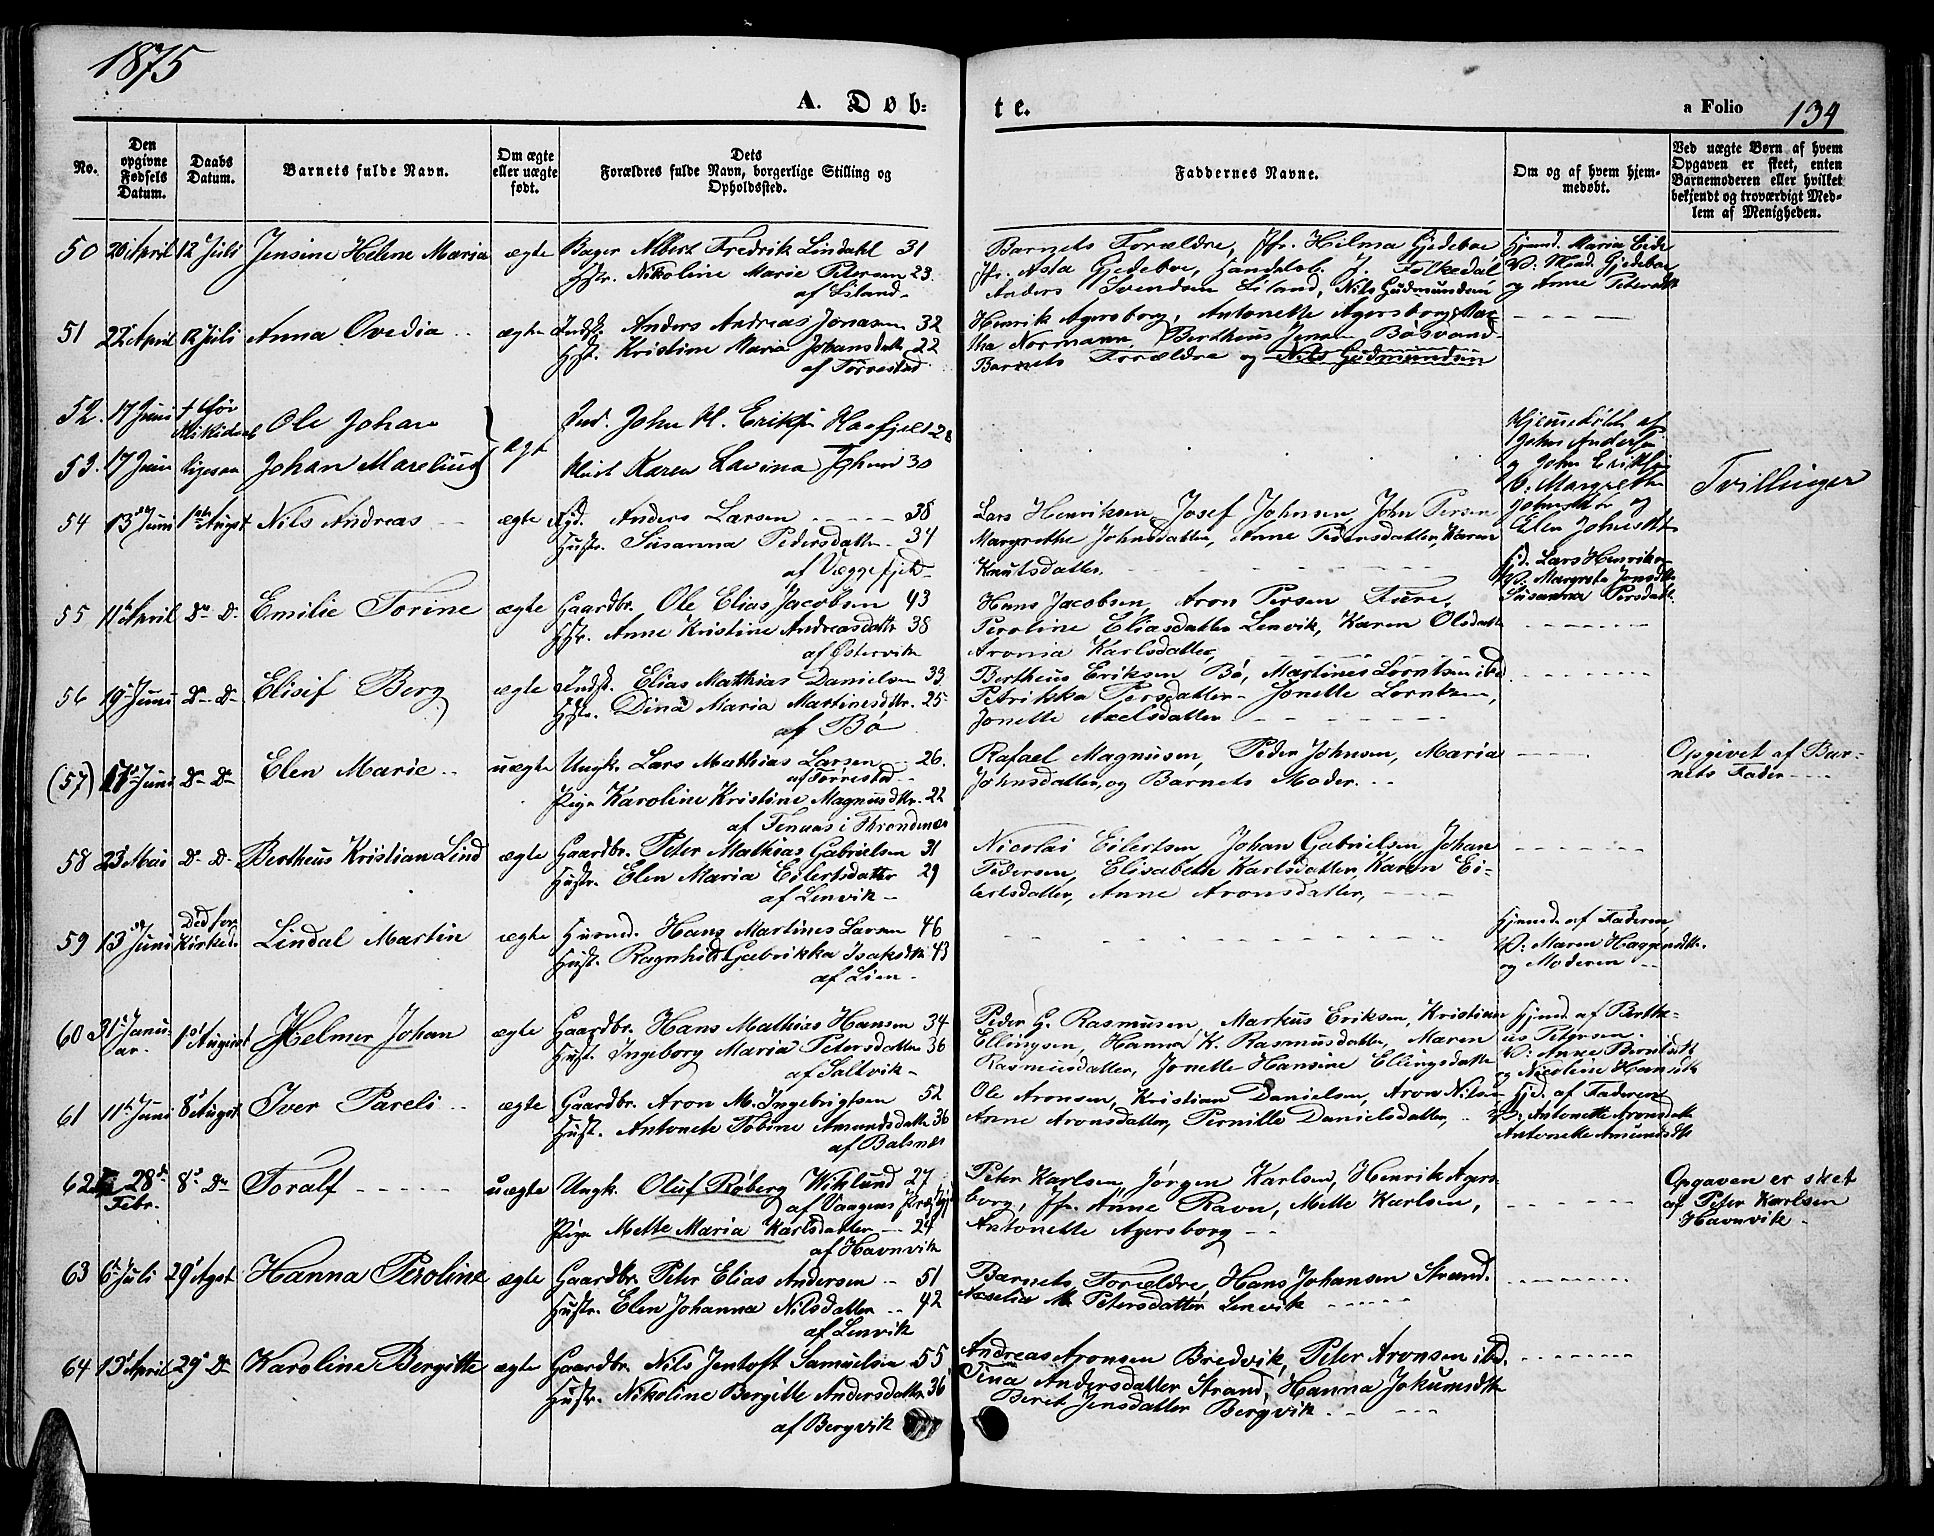 1875
A. Døb-
te.
a Folio 134
No.
Den opgivne Fødsels Datum.
Daabs Datum.
Barnets fulde Navn.
Om ægte eller uægte født.
Dets Forældres fulde Navn, borgerlige Stilling og Opholdssted.
Faddernes Navne.
Om og af hvem hjemmedøbt.
Ved uægte Børn af hvem Opgaven er skeet, enten Barnemoderen eller hvilket bekjendt og troværdigt Medlem af Menigheden.
50 20 April 12 Juli Jensine Helene Maria ægte Bager Albert Fredrik Lindahl 31
Hstr. Nikoline Marie Petersen 23.
af Liland
Barnets Forældre, Jfr. Hilma Gjedeboe
Jfr. Asta Gjedeboe, Handelsb. J. Folkedal
Anders Svendsen Liland, Nils Gudmundsen
Hjemd. Maria Eide
V: Mad. Gjedeboe
og Anne Petersdtr
51 22 April 12 Juli Anna Ovedia ægte Indst. Anders Andreas Jonasen 32
Hstr. Kristine Maria Johansdatr 22
af Torrestad
Henrik Agersborg, Antonette Agersborg, Mar-
tha Normann, Bertheus Jensen Bøsvand
Barnets Forældre og Nils Gudmundsen
52. 17 Juni † før Ole Johan
Ind. John H. Eriks. Haafjeld 28
53. 17 Juni ligesaa Johan Marelius ægt
Karen Lavina Johnsd 30
Hjemmedøbt af
John Anders.
og John Eriks.
V: Margrethe
Johnsdtr og
Elen Johnsdtr
Tvillinger
54 13 Juni 1ste August Nils Andreas ægte Anders Larsen 38
Hustr. Susanna Pedersdatter 34
af Væggefjeld
Lars Henriksen, Josef Johnsen, John Persen
Margrethe Johnsdatter, Anne Pedersdatter, Karen
Knutsdatter.
Hjd. Lars Henriksen
V: Margrete Jonsdtr.
Susanna Persdatr.
55 11 April Do Do Emilie Torine ægte Gaardbr. Ole Elias Jacobsen 43
Hstr. Anne Kristine Andreasdatr 38
af Østervik
Hans Jacobsen, Aron Persen Fure,
Peroline Eliasdatter Lenvik, Karen Olsdatr
Aronia Karlsdatter,
56 19 Juni Do Do Elisif Berg ægte Indst. Elias Mathias Danielsen 33
Hstr. Dina Maria Martinesdtr. 25
af Bø
Bertheus Eriksen Bø, Martines Lorntsen ibd
Petrikka Persdatter, Jonette Lorntsen,
Jonette Axelsdatter
(57) 17 Juni Do Do Elen Marie uægte Ungk. Lars Mathias Larsen 26.
af Torrestad
Pige Karoline Kristine Magnusdtr. 22
af Tennas i Throndenæs
Rafael Magnusen, Peder Johnsen, Maria
Johnsdatter, og Barnets Moder.
Opgivet af Bar-
nets Fader
58 23 Mai Do Do Bertheus Kristian Lind ægte Gaardbr. Peter Mathias Gabrielsen 31
Hustr. Elen Maria Eilertsdattr 29
af Lenvik
Nicolai Eilertsen, Johan Gabrielsen, Johan
Pedersen, Elisabeth Karlsdatter, Karen Ei-
lertsdatter, Anne Aronsdatter,
59 13 Juni Død før Kirked. Lindal Martin ægte Husmd. Hans Martines Larsen 46
Hustr. Ragnhild Gabrikka Isaksdtr 43
af Lien
Hjemd. af Faderen,
V: Maren Haagensdtr.
og Moderen
60 31 Janu-
ar. 1st August Helmer Johan ægte Gaardbr. Hans Mathias Hansen 34
Hustr. Ingeborg Maria Petersdatter 36
af Saltvik
Peder G. Rasmusen, Markus Eriksen, Kristian
Ellingsen, Hanna K. Rasmusdatter, Maren
Rasmusdatter, Jonette Hansine Ellingsdatter
Hjemd. af Berthe-
us Petersen.
V: Anne Berntsdtr
og Nicoline Hansdtr
61 11te Juni 8 August Iver Pareli ægte Gaardbr. Aron M. Ingebrigtsen 52
Hustr. Antonete Tobine Amundsdatter 36
af Balsnæs
Ole Aronsen, Kristian Danielsen, Aron Nilsen,
Anne Aronsdatter, Pernille Danielsdatter,
Hjd. af Faderen
V: Antonette Aronsdatr
Antonette Amundsdtr
62 28 Febr. 8 Do Toralf uægte Ungk. Oluf Røberg Wiklund 27
af Vaagens Præstgj
Pige Mette Maria Karlsdatter 24
af Havnvik
Peter Karlsen, Jørgen Karlsen, Henrik Agers-
borg, Jfr. Anne Ravn, Mette Karlsen,
Antonette Agersborg
Opgaven er sket
af Peter Karlsen
Havnvik
63 6 Juli 29 Agst Hanna Peroline ægte Gaardbr. Peter Elias Andersen 51
Hustr. Elen Johanna Nilsdatter 42
af Lenvik
Barnets Forældre, Hans Johansen Strand.
M. Petersdatter Lenvik
64 13 April 29 Do Karoline Bergitte ægte Gaardbr. Nils Jentoft Samuelsen 55
Hustr. Nikoline Bergitte Andersdatter 36
af Bergvik
Andreas Aronsen Bredvik, Peter Aronsen ibd.
Tina Andersdatter Strand, Hanna Jokumsdtr
Berit Jensdatter Bergvik.